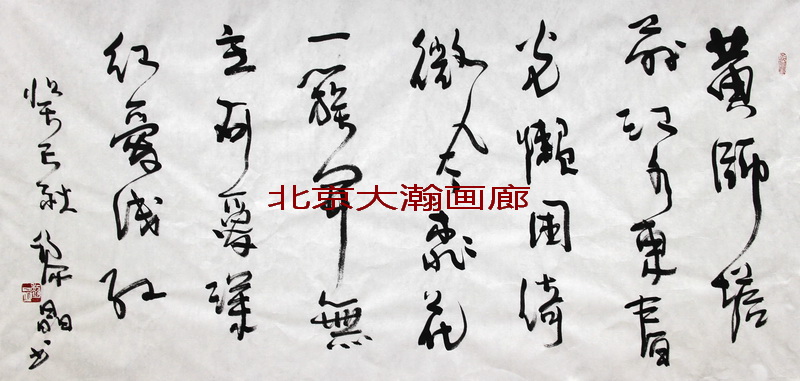 黄師塔
前江水東春
光懶困倚
微風桃花
一簇開無
主可愛深
紅愛淺紅
巳秋黎晶书
北京大瀚画廊